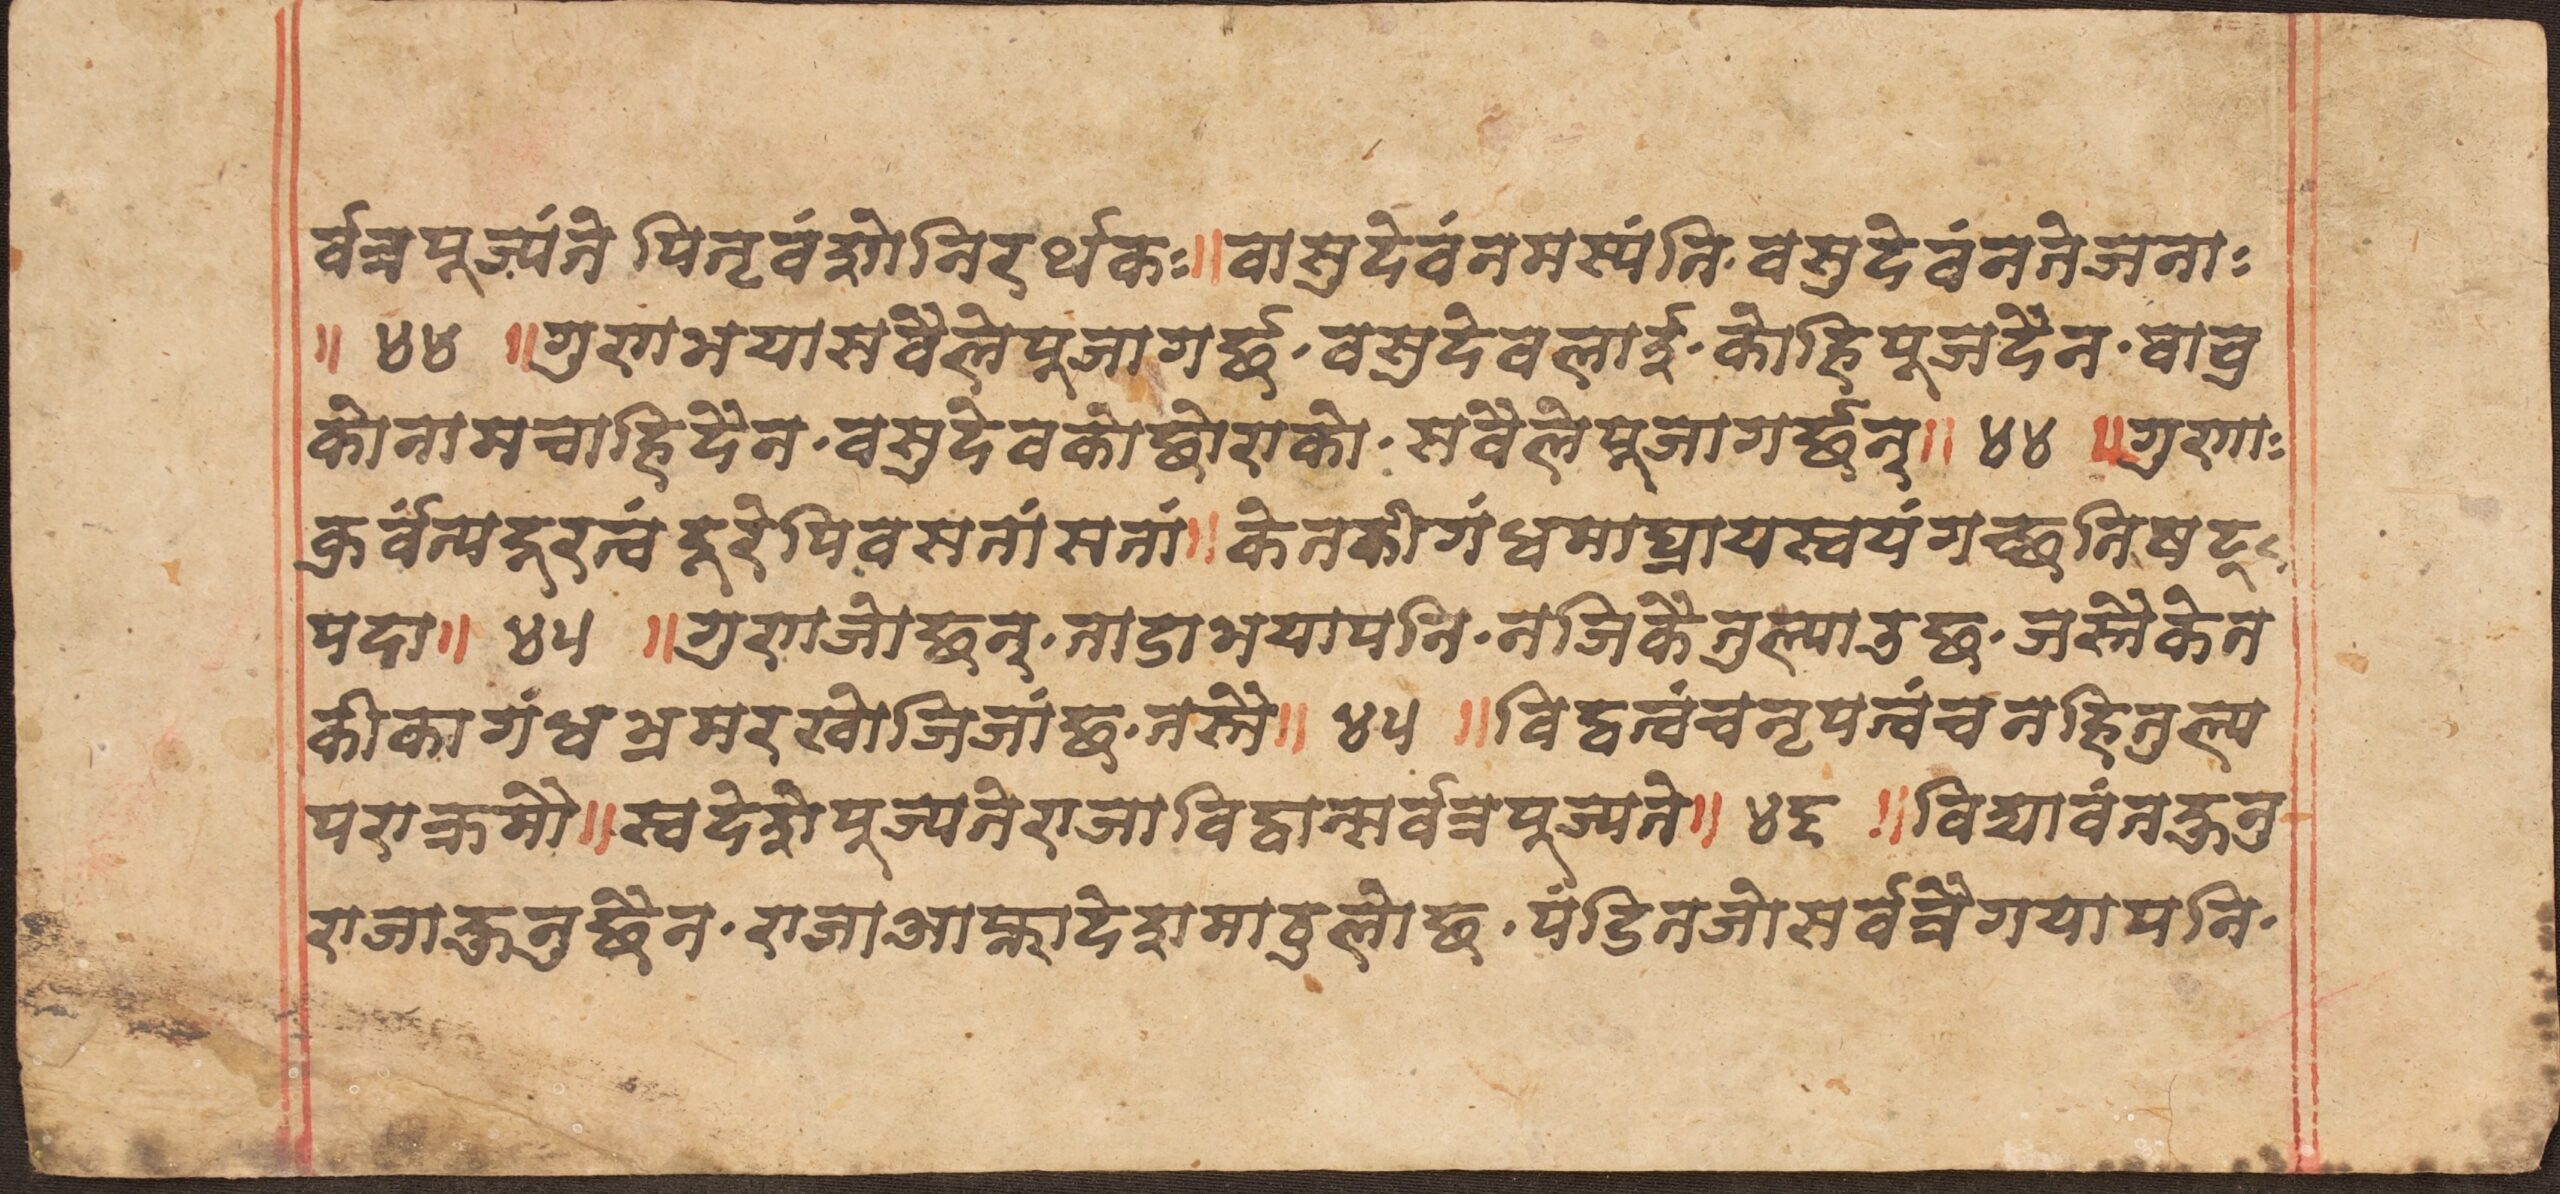 र्वत्रपूज्यंते पितृवंशोनिरर्थकः॥वासुदेवंनमस्यंति·वसुदेवंनतेजनाः
॥ ४४ ॥गुणभयासवैलेपूजागर्छ·वसुदेवलाई·कोहिपूजदैन·बाबु
कोनामचाहिदैन·वसुदेवकोछोराको·सवैलेपूजागर्छन्॥ ४४ ॥गुणाः
कुर्वंत्यदूरत्वंदूरेपिवसतांसतां॥केतकीगंधमाघ्रायस्वयंगच्छतिषट्
पदा॥ ४५ ॥गुणजोछन्·ताडाभयापनि·नजिकैतुल्याउछ·जस्तैकेत
कीकागंधभ्रमरखोजिजांछ·तस्तै॥ ४५ ॥विद्वत्वंचनृपत्वंचनहितुल्य
पराक्रमौ॥स्वदेशेपूज्यतेराजाविद्वान्सर्वत्रपूज्यते॥ ४६ ॥विद्यावंतकुनु
राजाकुनुछैन·राजाआफ्नादेशमाठुलोछ·पंडितजोसर्वत्रैगयापनि·